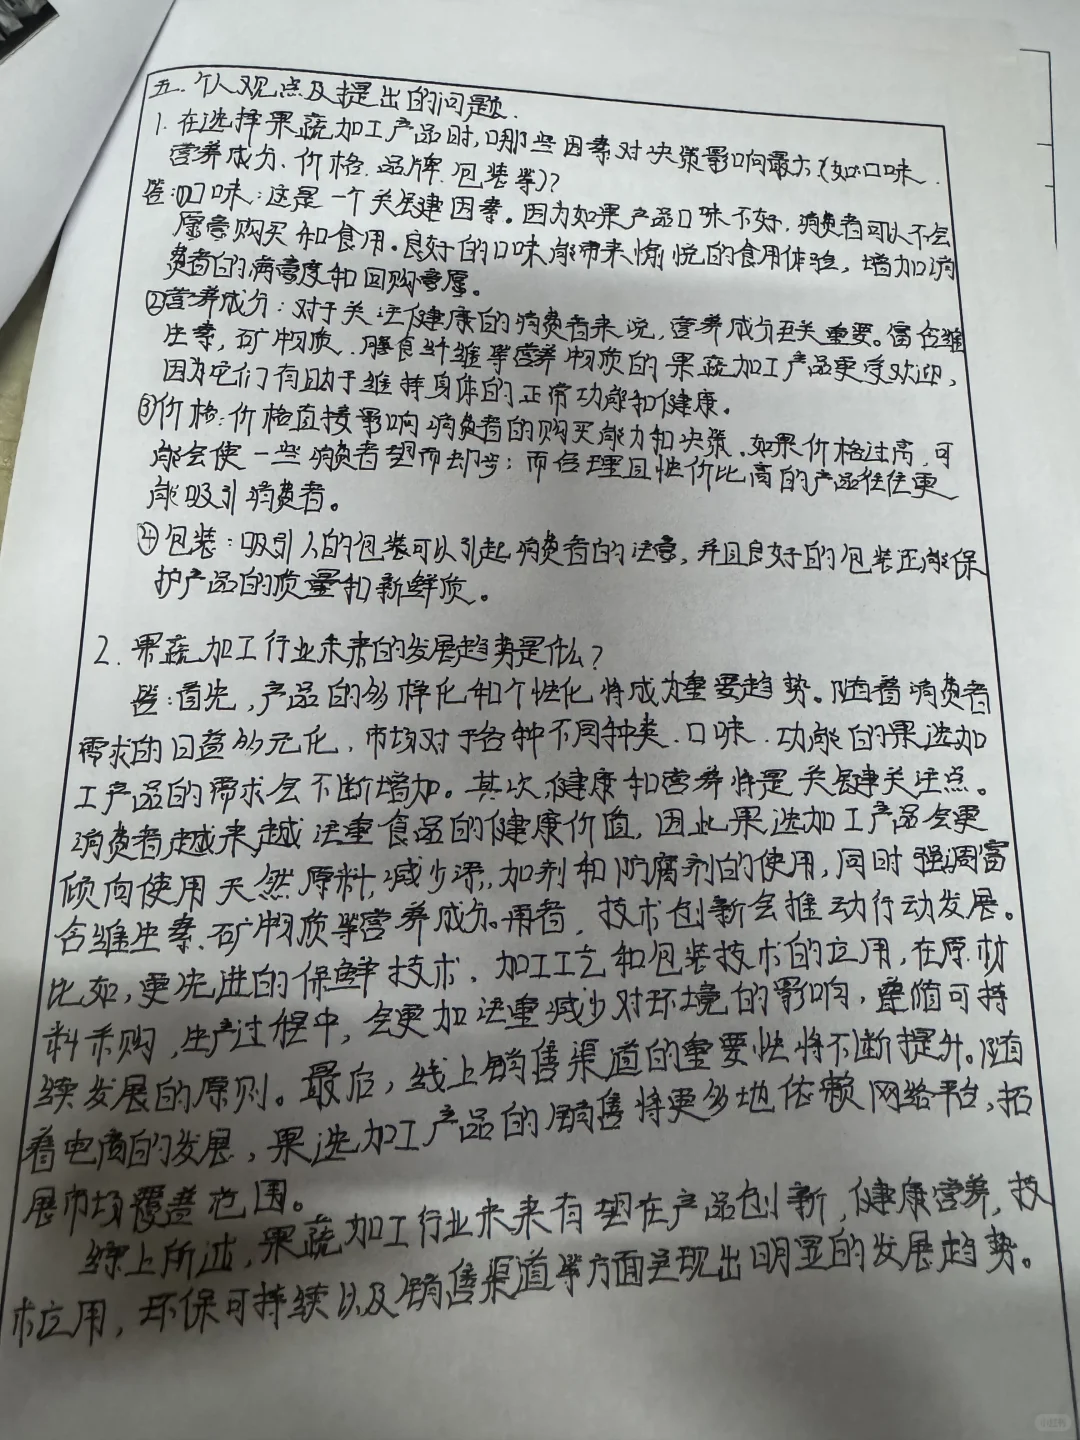 五. 个人观点及提出的问题.
1. 在选择果蔬加工产品时,哪些因素对决策影响最大(如口味.
营养成分、价格.品牌.包装等)?
答:①口味:这是一个关键因素。因为如果产品口味不好,消费者可以不会
愿意购买和食用。良好的口味能带来愉悦的食用体验,增加消
费者的满意度和回购意愿。
②营养成分:对于关注健康的消费者来说,营养成分至关重要。富含维
生素,矿物质.膳食纤维等营养物质的果蔬加工产品更受欢迎,
因为它们有助于维持身体的正常功能和健康。
③价格:价格直接影响消费者的购买能力和决策。如果价格过高,可
能会使一些消费者望而却步;而合理且性价比高的产品往往更
能吸引消费者。
④包装:吸引人的包装可以引起消费者的注意,并且良好的包装还能保
护产品的质量和新鲜质。
2. 果蔬加工行业未来的发展趋势是什么?
答:首先,产品的多样化和个性化将成为重要趋势。随着消费者
需求的日益多元化,市场对于各种不同种类.口味.功能的果选加
工产品的需求会不断增加。其次,健康和营养将是关键关注点。
消费者越来越注重食品的健康价值,因此果选加工产品会更
倾向使用天然原料,减少添加剂和防腐剂的使用,同时强调富
含维生素、矿物质等营养成分。再者,技术创新会推动行动发展。
比如,更先进的保鲜技术.加工工艺和包装技术的应用,在原材
料采购,生产过程中,会更加注重减少对环境的影响,遵循可持
续发展的原则。最后,线上销售渠道的重要性将不断提升。随
着电商的发展,果选加工产品的销售将更多地依赖网络平台,拓
展市场覆盖范围。
综上所述,果蔬加工行业未来有望在产品创新,健康营养,技
术应用,环保可持续以及销售渠道等方面呈现出明显的发展趋势。
小红书